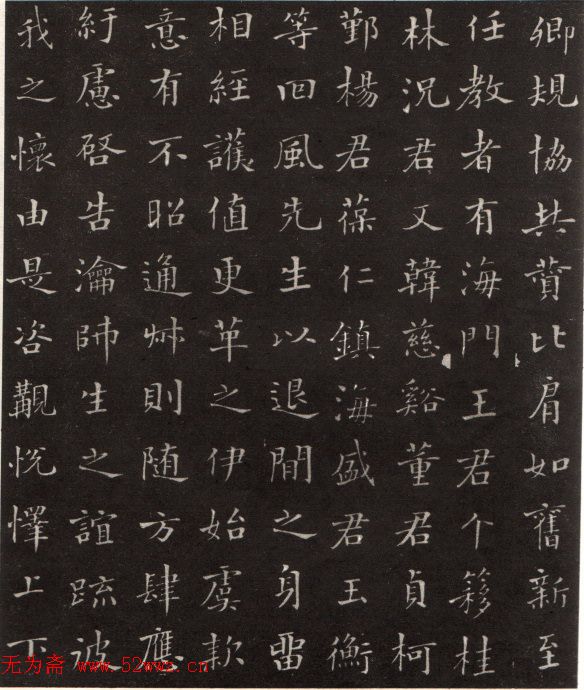 卿規協共賛比肩如舊新至
任教者有海門王君个簃桂
林況君又韓慈谿董君貞柯
鄞楊君葆仁鎮海盛君玉衡
等回風先生以退閒之身畱
相經護值更革之伊始虞款
意有不昭通艸則随方肆應
紆慮啓告瀹師生之誼疏彼
我之懷由是咨覯悦懌上下
无为斋 www.52wwz.cn